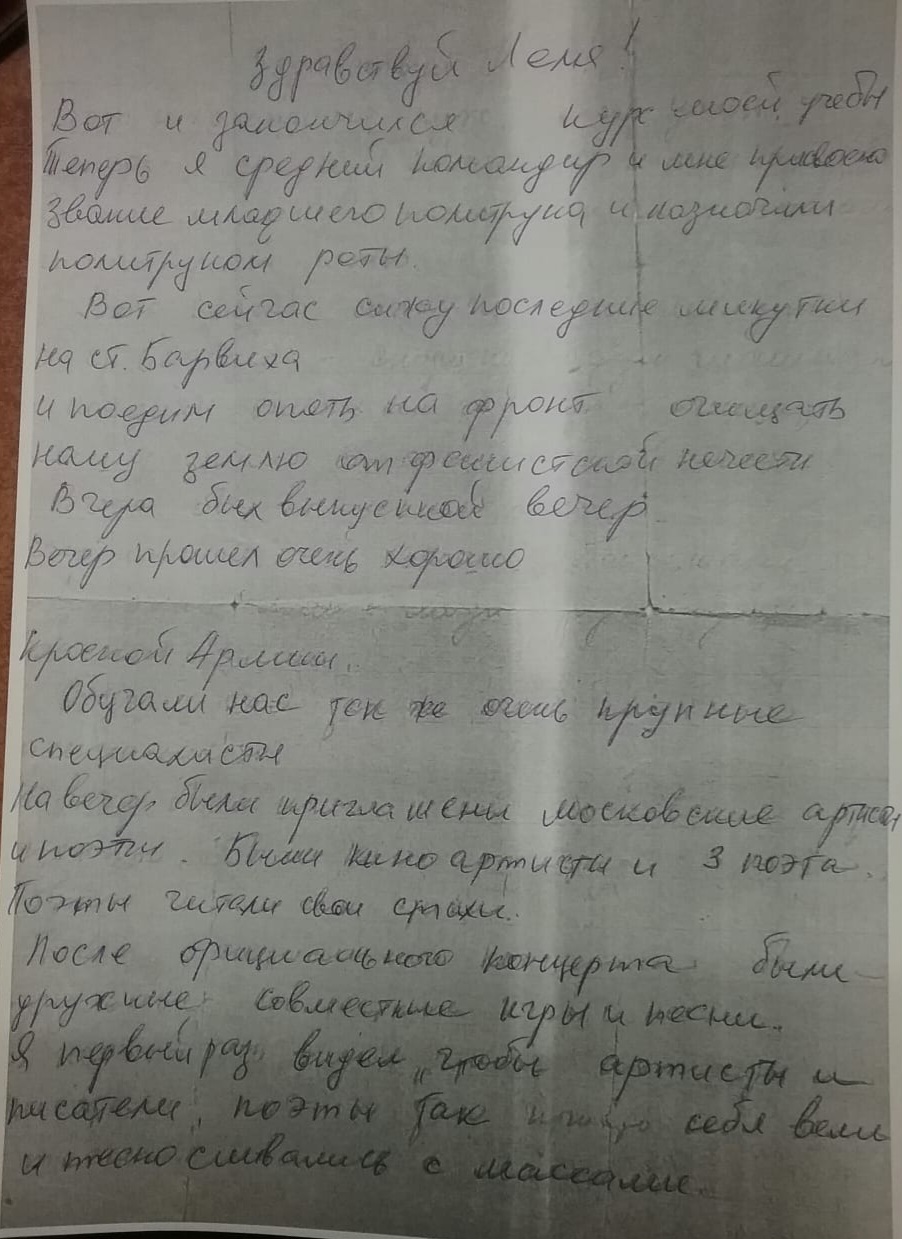 Здравствуй Леля!
Вот и закончился курс моей учебы
Теперь я средний командир и мне присвоено
звание младшего политрука и назначили
политруком роты.
Вот сейчас сижу последние минутки
на ст. Барвиха
и поедим опять на фронт очищать
нашу землю от фашистской нечести
Вчера был выпускной вечер
Вечер прошел очень хорошо
Красной Армии.
Обучали нас так же очень крупные
специалисты
На вечер были приглашены московские артисты
и поэты. Были кино артисты и 3 поэта.
Поэты читали свои стихи.
После официального концерта были
дружные совместные игры и песни.
Я первый раз видел, чтобы артисты и
писатели, поэты так себя вели
и тесно сливались с массами.